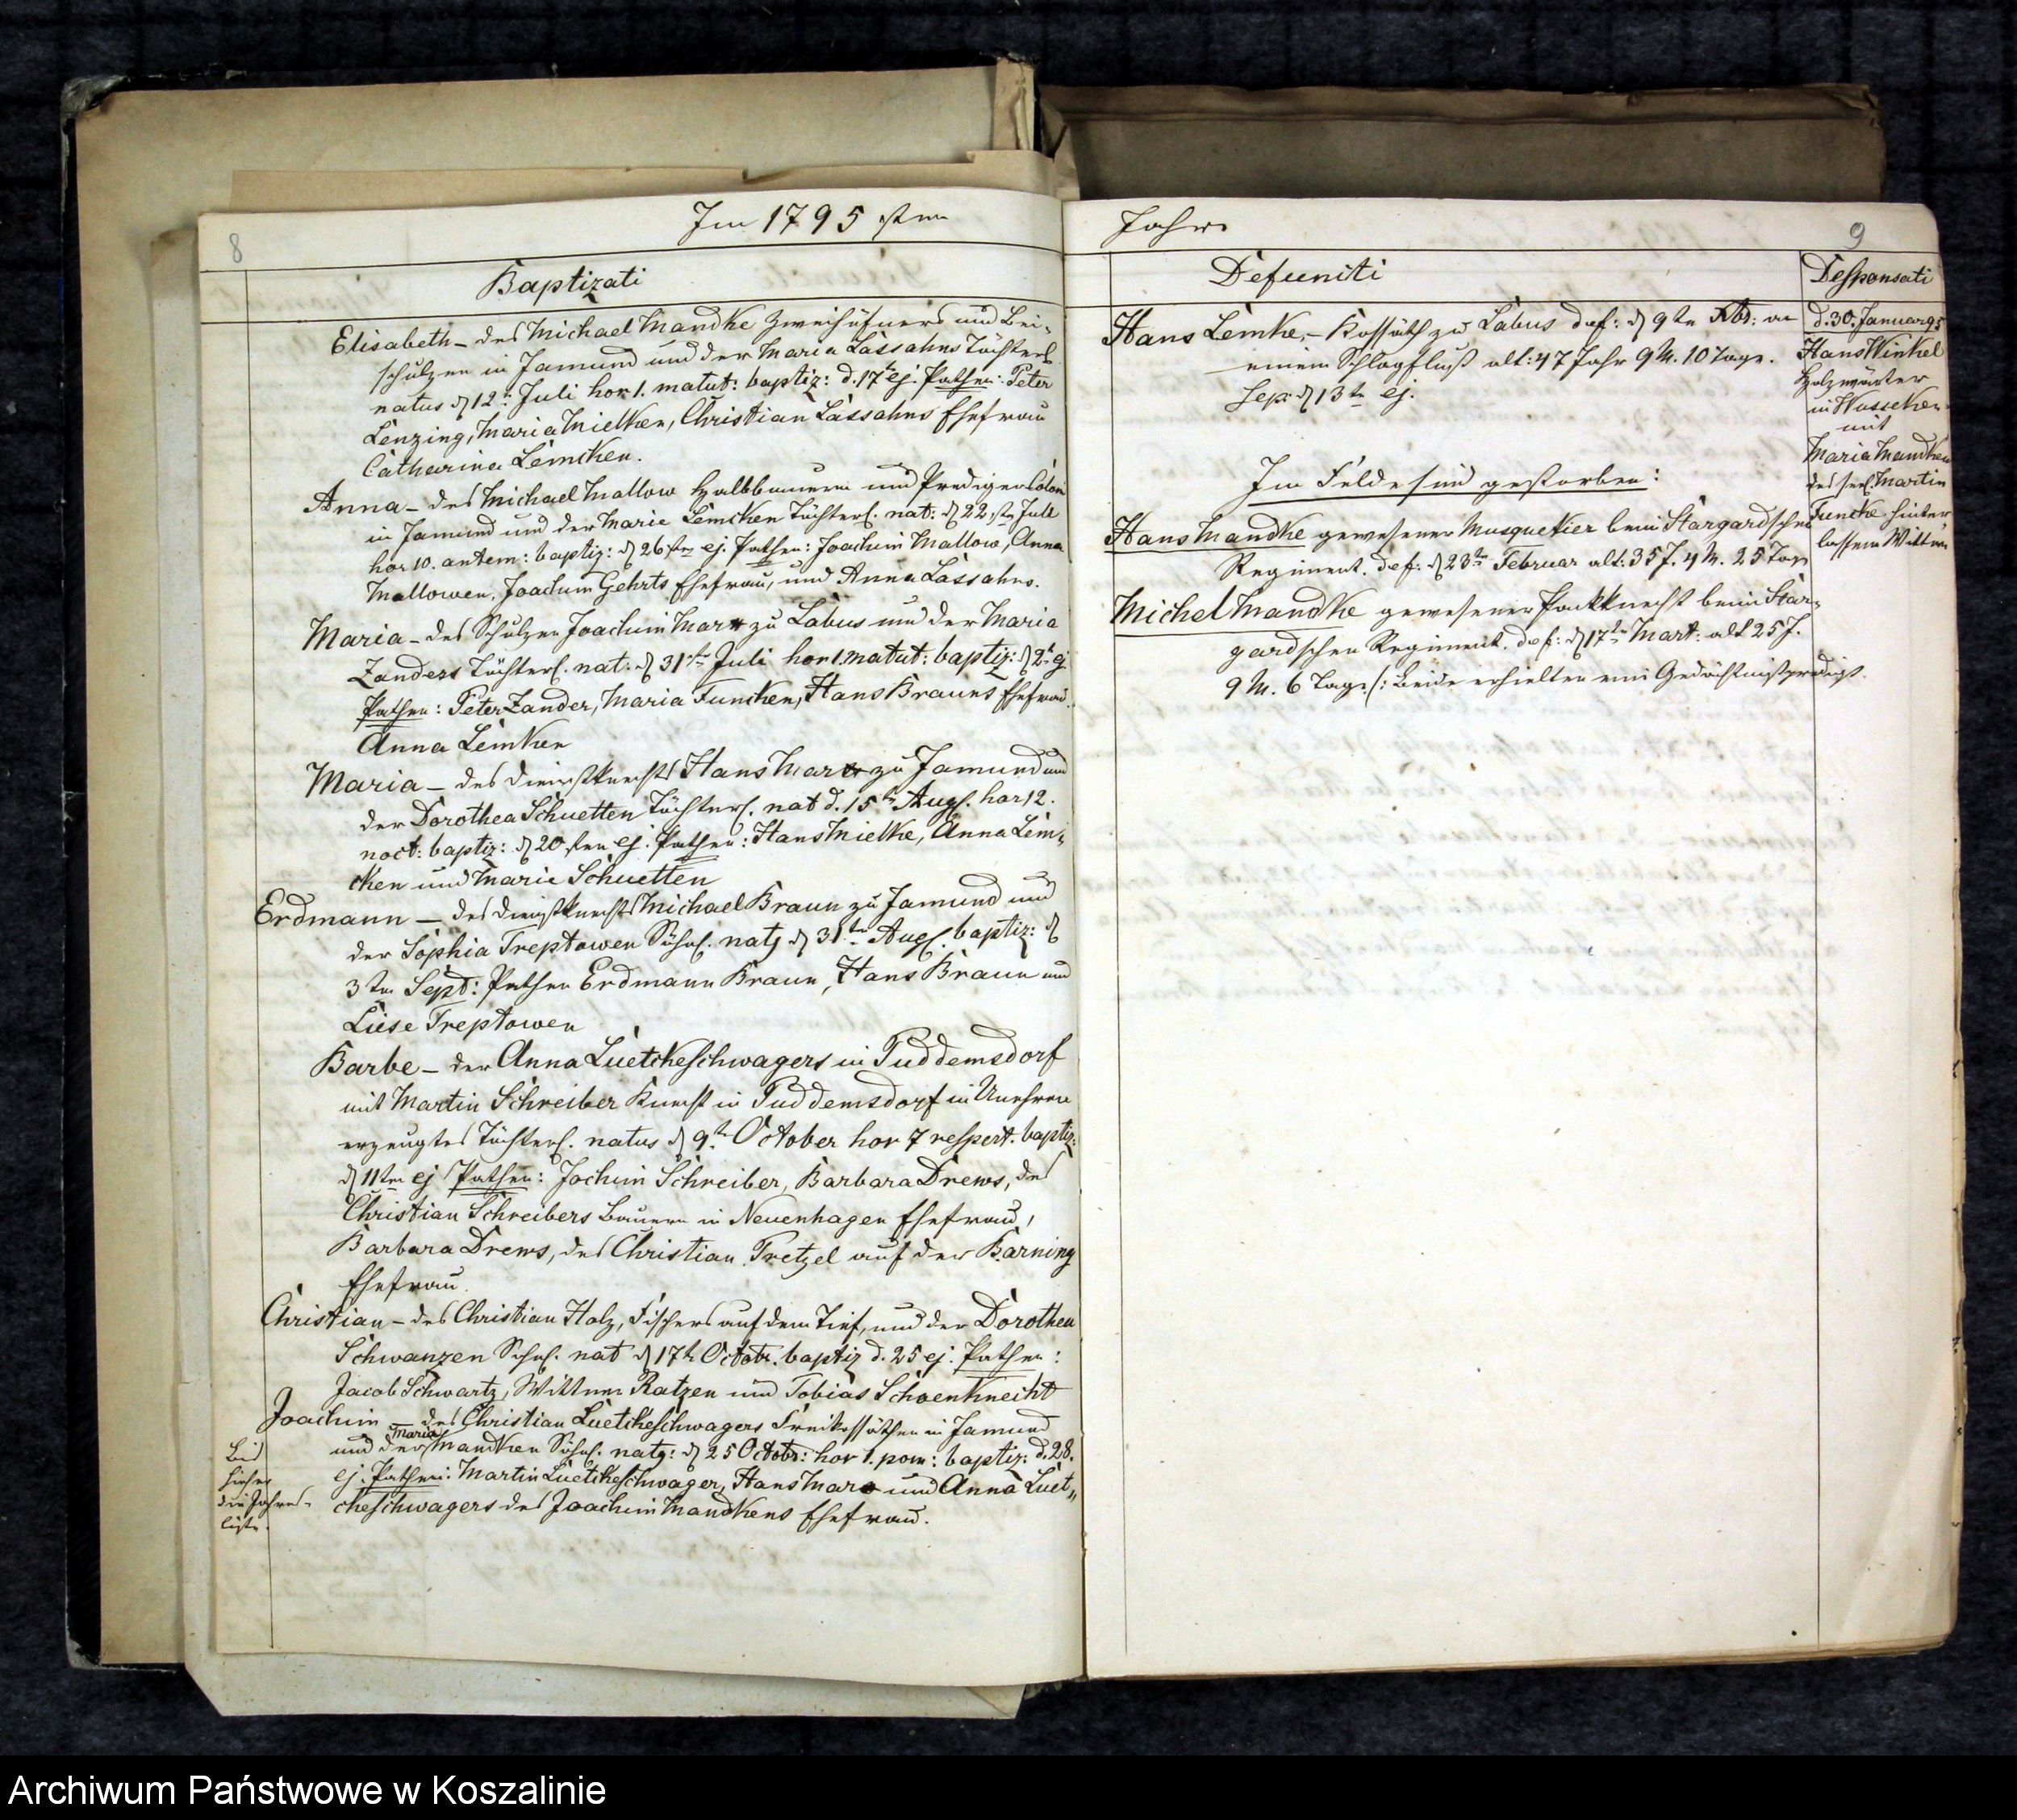 8
Im 1795 sten
Baptizati
Elisabeth – des Michael Mandke Zweihüfners und Bei-
schulzen in Jamund und der Maria Lassahns Töchterl.
natus d 12t Juli hor 1. matut: baptiz: d. 17t ej. Pathen: Peter
Lenzing, Maria Mielken, Christian Lassahns Ehefrau
Catharina Lemcken.
Anna – des Michael Mallow Halbbauern und Prediger
in Jamund und der Marie Lemcken Töchterl. nat: d 22ste Juli
hor 10. antem: baptiz: d 26sten ej. Pathen: Joachim Mallow, Anna
Mallowen, Joachim Gehrts Ehefrau, und Anna Lassahns.
Maria – des Schulzen Joachim Marx zu Labus und der Maria
Zanders Töchterl. nat: d 31ste Juli hor 1. matut: baptiz: d 2t
Pathen: Peter Zander, Maria Funcken, Hans Brauns Ehefrau
Anna Lemken
Maria – des Dienstknechts Hans Marx zu Jamund und
der Dorothea Schuetten Töchterl. nat d. 15te Augs. hor 12.
noct: baptiz: d 20sten ej. Pathen: Hans Mielke, Anna Lem-
cken und Marie Schuetten
Erdmann – des Dienstknechts Michael Braun zu Jamund und
der Sophia Treptowen Söhnl. natg d 31te Augs. baptiz: d
3ten Sept: Pathen Erdmann Braun, Hans Braun und
Liese Treptowen
Barbe – der Anna Luetckeschwagers in Puddemsdorf
mit Martin Schreiber Knecht in Puddemsdorf in Unehren
erzeugtes Töchterl. natus d 9te October hor 7 respert. baptiz:
d 11ten ej Pathen: Jochim Schreiber, Barbara Drews, des
Christian Schreibers Bauern in Neuenhagen Ehefrau,
Barbara Drews, des Christian Tretzel auf der Barning
Ehefrau.
Christian – des Christian Holz, Fischers auf dem Tief, und der Dorothea
Schwanzen Söhnl. nat d 17t Octobr. baptiz d. 25 ej. Pathen:
Jacob Schwartz, Wittwe Ratzen und Tobias Schoenknecht
Joachim – des Christian Luetckeschwagers Freikossäthen in Jamund
und der Maria Mandken Söhnl. natg: d 25 Octobr: hor 1. pom: baptiz: d. 28.
ej. Pathen: Martin Luetckeschwager, Hans Marx und Anna Luet-
ckeschwagers des Joachim Mandkens Ehefrau.
Bis
hieher
die Jahres-
liste.
Jahre
9
Defuncti
Hans Lemke, – Kossäth zu Labus def: d 9te Xbr: an
einem Schlagfluß alt: 47 Jahr 9 M. 10 Tage.
Sep: d 13te ej.
Im Felde sind gestorben:
Hans Mandke gewesener Musquetier beim Stargardschen
Regiment. def: d 23te Februar alt: 35 J. 4 M. 25 Tage
Michel Mandke gewesener Packknecht beim Star-
gardschen Regiment. def: d 17te Mart: alt 25 J.
9 M. 6 Tage /: Beide erhielten eine Gedächtnißpredigt.
Desponsati
d. 30. Januar 95
Hans Winkel
Holzwärter
in Wusseken
mit
Maria Mandken
des sel. Martin
Funcke hinter
lassene Wittwe
Archiwum Państwowe w Koszalinie